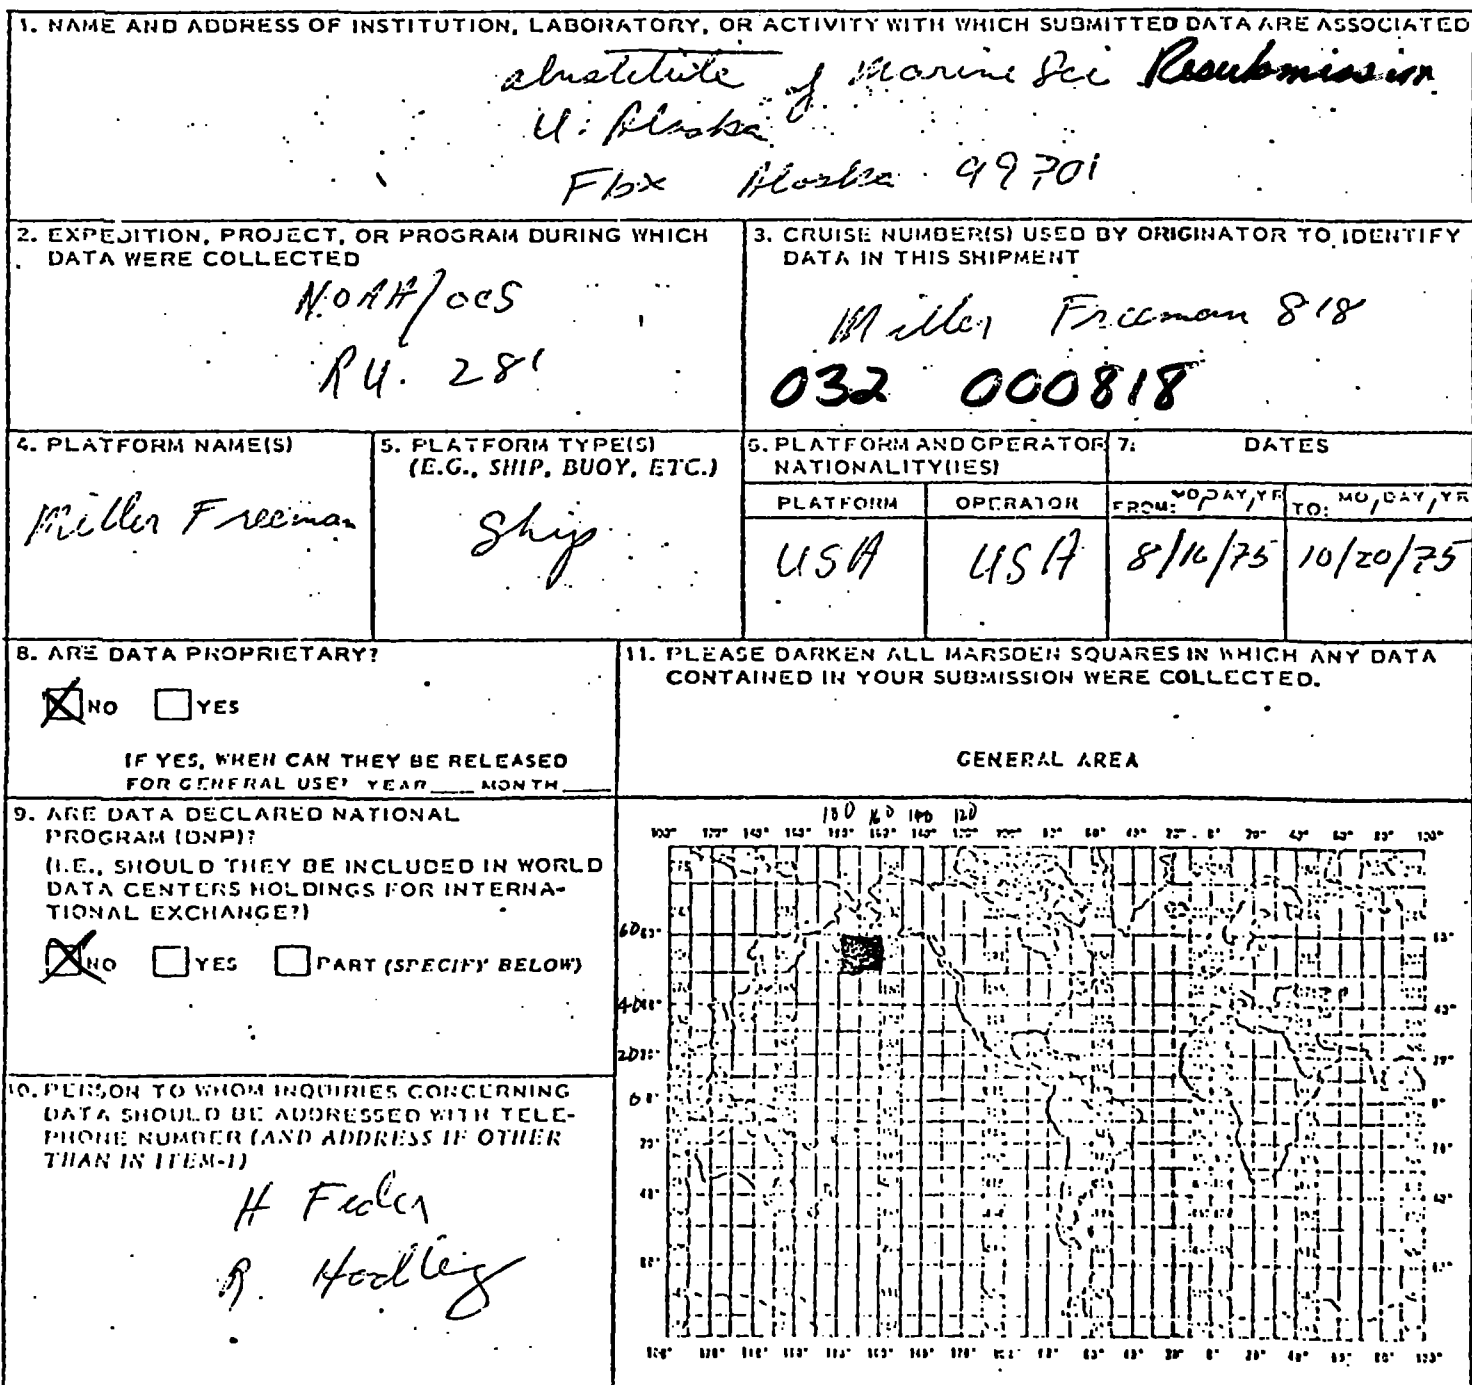 1. NAME AND ADDRESS OF INSTITUTION, LABORATORY, OR ACTIVITY WITH WHICH SUBMITTED DATA ARE ASSOCIATED
Institute of Marine Sci Resubmission
U. Alaska
Fbx Alaska 99701
2. EXPEDITION, PROJECT, OR PROGRAM DURING WHICH
DATA WERE COLLECTED
NOAA/OCS
RU. 281
3. CRUISE NUMBER(S) USED BY ORIGINATOR TO IDENTIFY
DATA IN THIS SHIPMENT
Miller Freeman 818
032 000818
4. PLATFORM NAME(S)
Miller Freeman
5. PLATFORM TYPE(S)
(E.G., SHIP, BUOY, ETC.)
Ship
6. PLATFORM AND OPERATOR
NATIONALITY(IES)
PLATFORM OPERATOR
USA USA
7. DATES
FROM: MO/DAY/YR TO: MO/DAY/YR
8/16/75 10/20/75
8. ARE DATA PROPRIETARY?
NO YES
IF YES, WHEN CAN THEY BE RELEASED
FOR GENERAL USE? YEAR____ MONTH____
9. ARE DATA DECLARED NATIONAL
PROGRAM (DNP)?
(I.E., SHOULD THEY BE INCLUDED IN WORLD
DATA CENTERS HOLDINGS FOR INTERNA-
TIONAL EXCHANGE?)
NO YES PART (SPECIFY BELOW)
10. PERSON TO WHOM INQUIRIES CONCERNING
DATA SHOULD BE ADDRESSED WITH TELE-
PHONE NUMBER (AND ADDRESS IF OTHER
THAN IN ITEM-1)
H Feder
R.
11. PLEASE DARKEN ALL MARSDEN SQUARES IN WHICH ANY DATA
CONTAINED IN YOUR SUBMISSION WERE COLLECTED.
GENERAL AREA
180 160 140 120
60
40
20
0